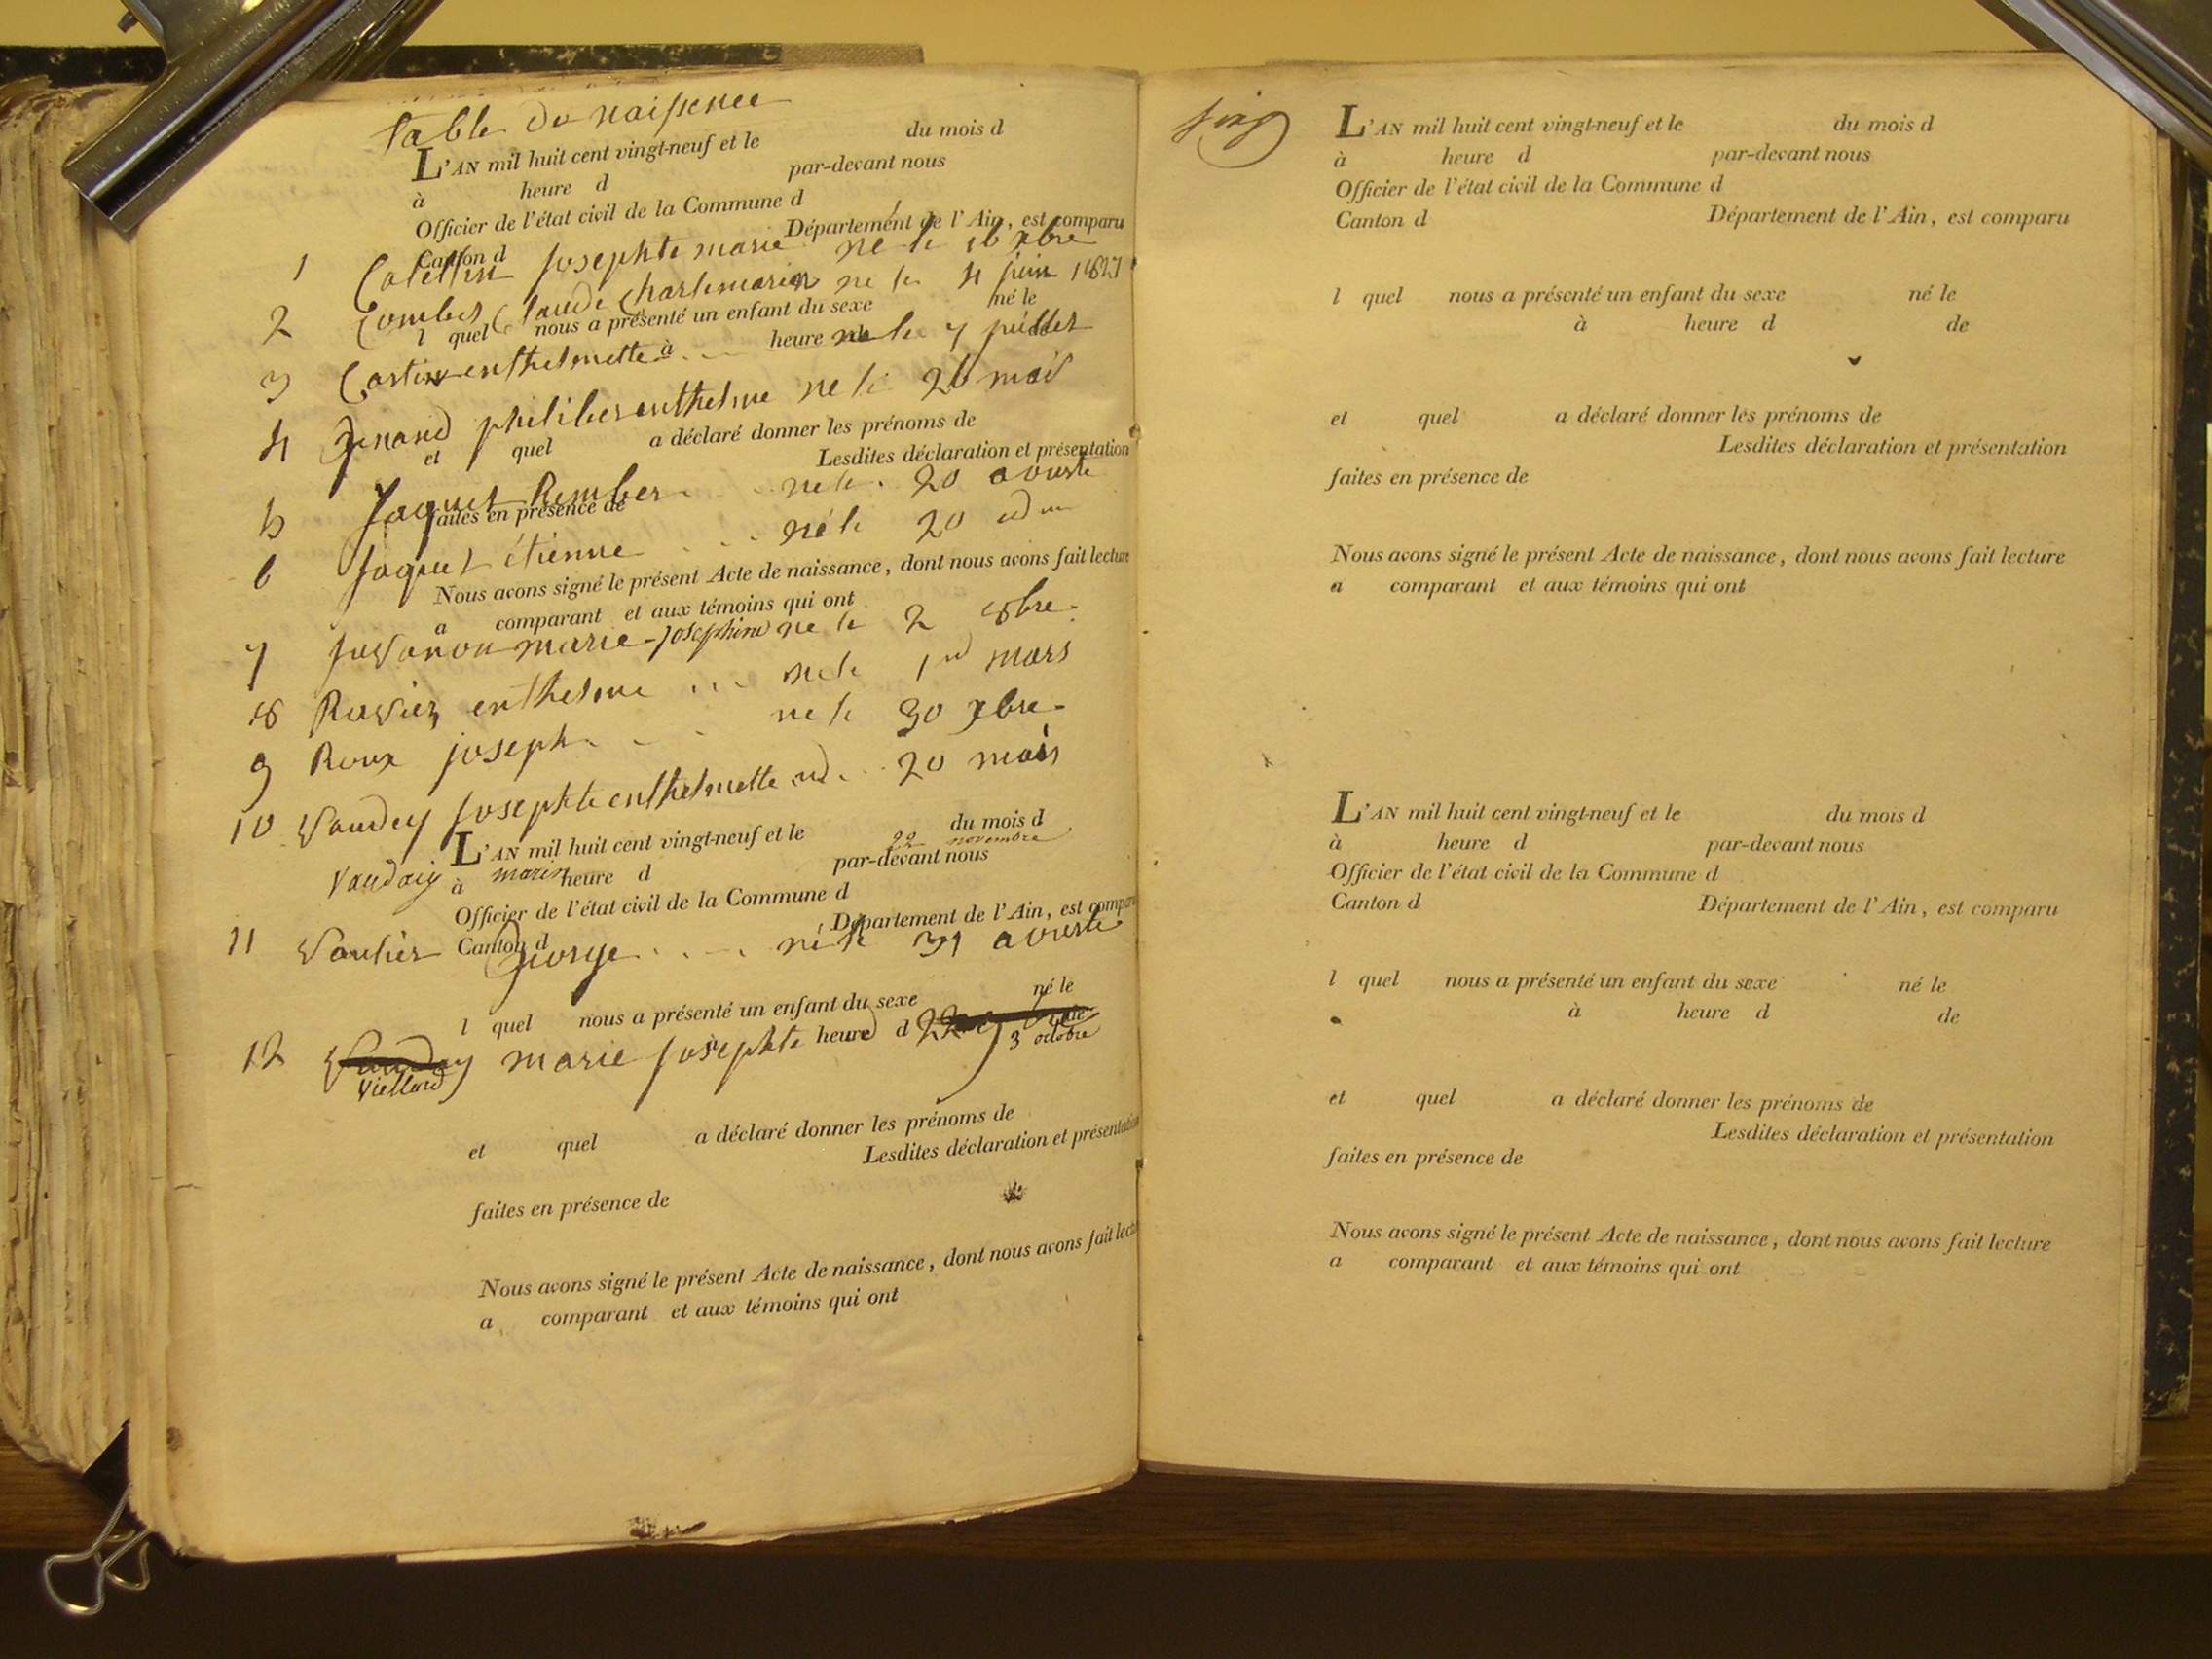 Table de naissence
L'AN mil huit cent vingt-neuf et le du mois d
à heure d par-devant nous
Officier de l'état civil de la Commune d
Canton d Département de l'Ain, est comparu
1 Josephte marie né le 16 xbre
2 Combes Claude Charlemarien ne le 4 juin
l quel nous a présenté un enfant du sexe né le
à heure
3 enthelmette ne le 7 juillet
4 philiber enthelme ne le 26 mai
et quel a déclaré donner les prénoms de
Lesdites déclaration et présentation
5 Jaquet Rember ne le 20 avuste
faites en présence de
6 Jaquet étienne né le 20 udm
Nous avons signé le présent Acte de naissance, dont nous avons fait lecture
a comparant et aux témoins qui ont
7 Juvanon marie-josephine ne le 2 8bre
8 Ruvier enthelme ne le 1er mars
9 Roux joseph ne le 30 xbre
10 Vaudey Josephte enthelmette ud 20 mais
L'AN mil huit cent vingt-neuf et le du mois d
Vaudaiy marin 22 novembre
à heure d par-devant nous
Officier de l'état civil de la Commune d
Canton d Département de l'Ain, est compar
11 Vautier George né le 31 avuste
l quel nous a présenté un enfant du sexe né le
heure d
12 marie Josephte 3 octobre
Viellard
et quel a déclaré donner les prénoms de
Lesdites déclaration et présentation
faites en présence de
Nous avons signé le présent Acte de naissance, dont nous avons fait lect
a comparant et aux témoins qui ont
L'AN mil huit cent vingt-neuf et le du mois d
à heure d par-devant nous
Officier de l'état civil de la Commune d
Canton d Département de l'Ain, est comparu
l quel nous a présenté un enfant du sexe né le
à heure d de
et quel a déclaré donner les prénoms de
Lesdites déclaration et présentation
faites en présence de
Nous avons signé le présent Acte de naissance, dont nous avons fait lecture
a comparant et aux témoins qui ont
L'AN mil huit cent vingt-neuf et le du mois d
à heure d par-devant nous
Officier de l'état civil de la Commune d
Canton d Département de l'Ain, est comparu
l quel nous a présenté un enfant du sexe né le
à heure d de
et quel a déclaré donner les prénoms de
Lesdites déclaration et présentation
faites en présence de
Nous avons signé le présent Acte de naissance, dont nous avons fait lecture
a comparant et aux témoins qui ont